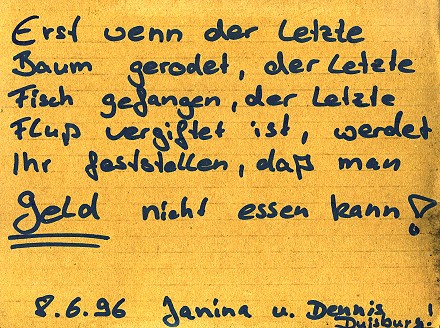 Erst wenn der letzte
Baum gerodet, der letzte
Fisch gefangen, der letzte
Fluß vergiftet ist, werdet
Ihr feststellen, daß man
Geld nicht essen kann!
8.6.96 Janina u. Dennis!
Duisburg